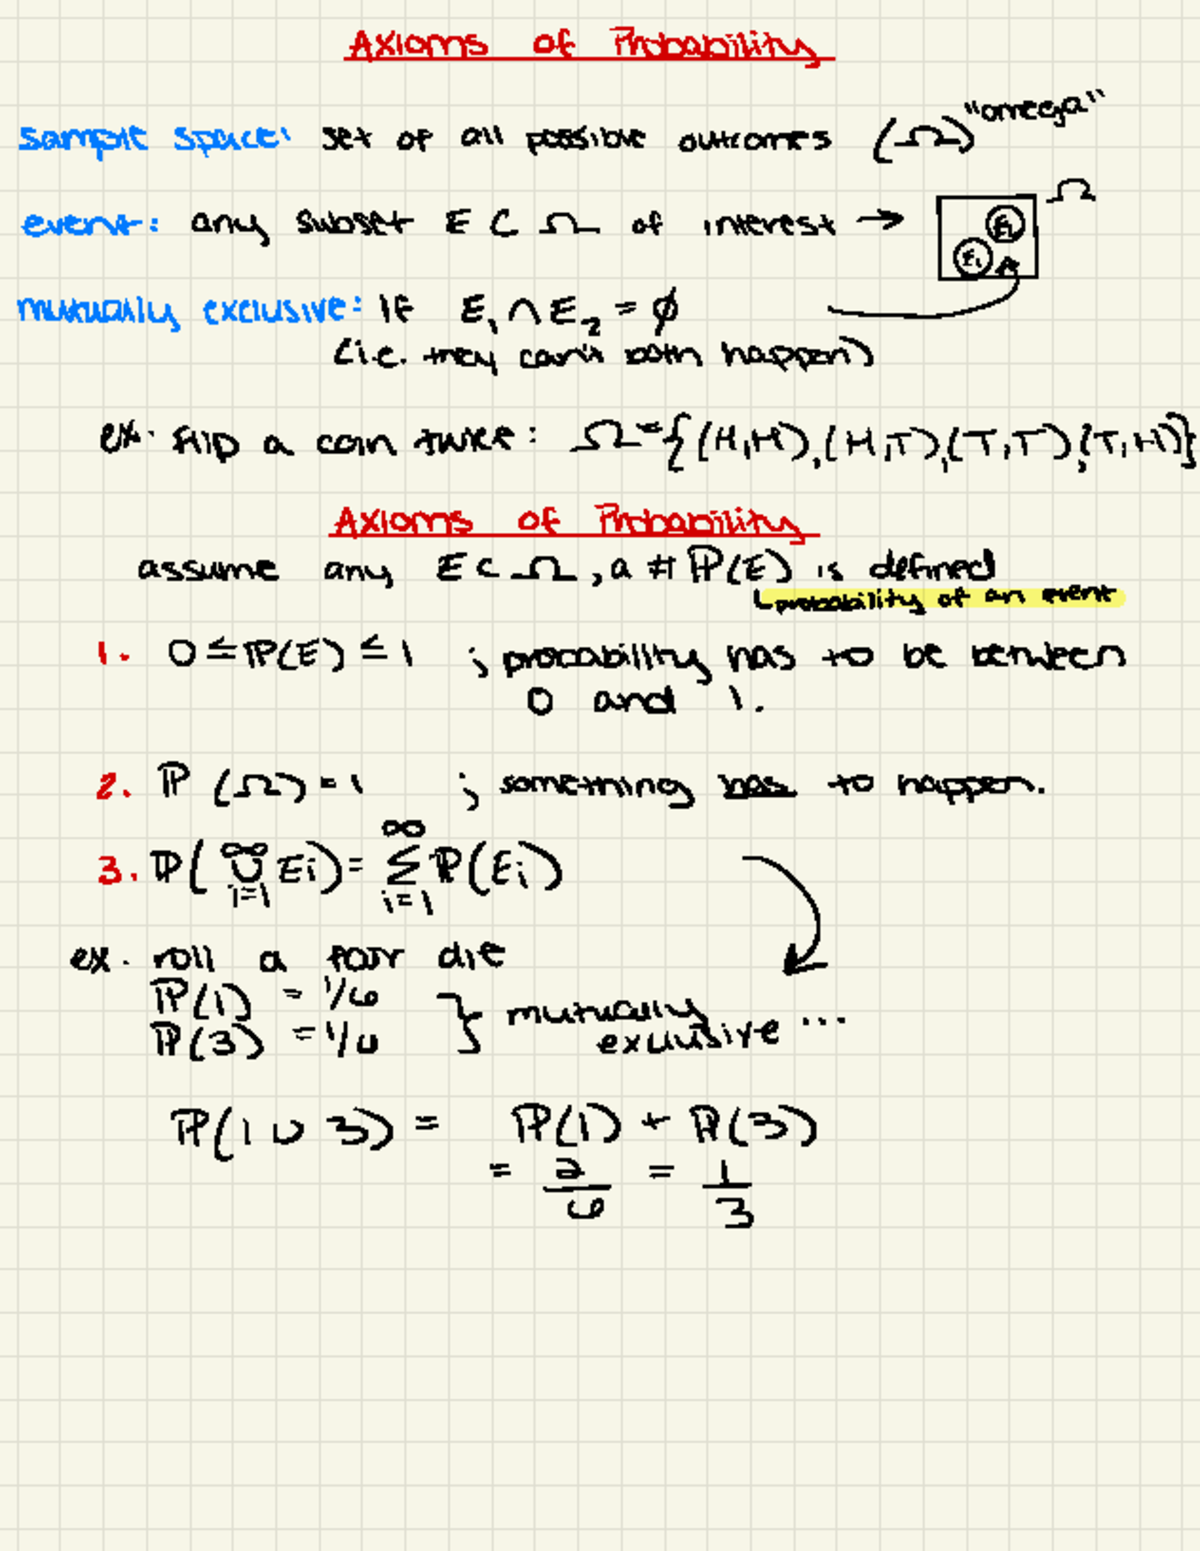 Axioms of Probability
sample space: set of all possible outcomes (Ω) "omega"
event: any subset E ⊂ Ω of interest → Ω
E₂
E₁
mutually exclusive: if E₁ ∩ E₂ = ∅
(i.e. they can't both happen)
ex. flip a coin twice: Ω = {(H,H), (H,T), (T,T), (T,H)}
Axioms of Probability
assume any E ⊂ Ω, a # ℙ(E) is defined
probability of an event
1. 0 ≤ ℙ(E) ≤ 1 ; probability has to be between
0 and 1.
2. ℙ(Ω) = 1 ; something has to happen.
3. ℙ(∞∪i=1 Ei) = ∞Σi=1 ℙ(Ei)
ex. roll a fair die
ℙ(1) = 1/6
ℙ(3) = 1/6 } mutually
exclusive ...
ℙ(1 ∪ 3) = ℙ(1) + ℙ(3)
= 2/6 = 1/3